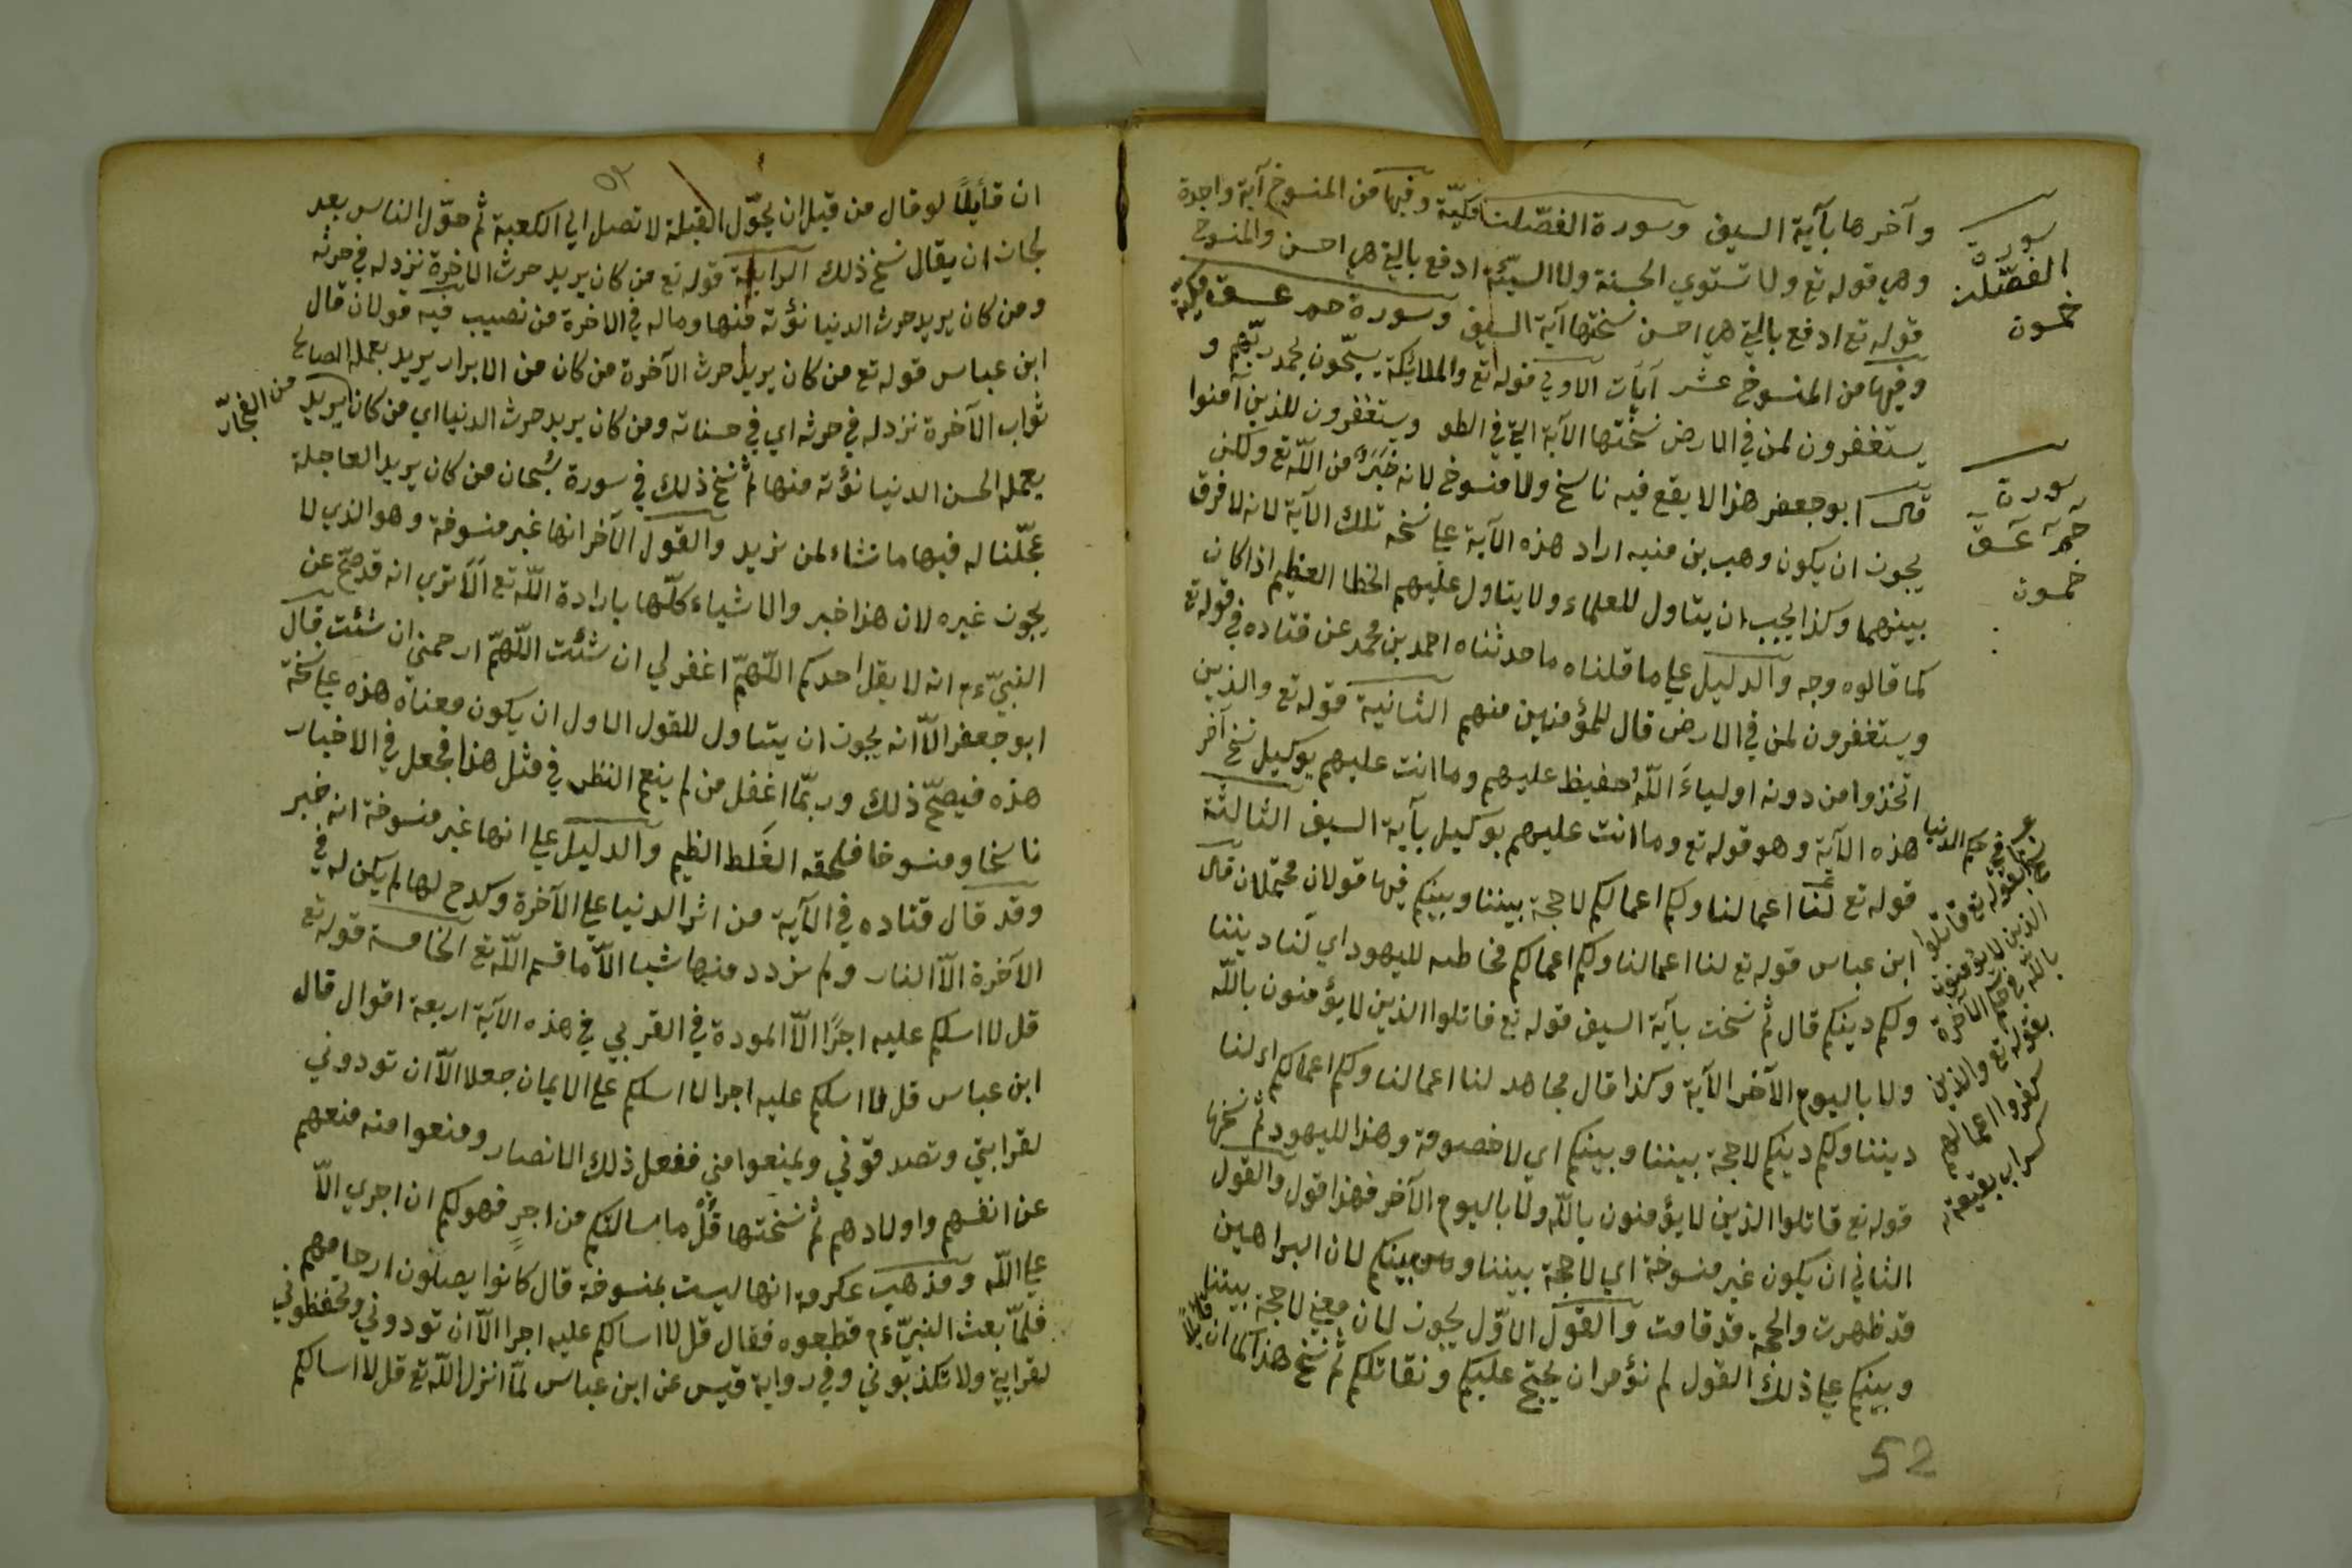 وآخرها بآية السيف وسورة الفصّلت مكيّة وفيها من المنسوخ آية واحدة
وهي قوله تع ولا تستوي الحسنة ولا السيّئة ادفع بالتي هي احسن والمنسوخ
قوله تع ادفع بالتي هي احسن نسختها آية السيف وسورة حم عسق مكية
وفيها من المنسوخ عشر آيات الاولي قوله تع والملائكة يسبّحون بحمد ربّهم و
يستغفرون لمن في الارض نسختها الآية التي في الطو ويستغفرون للذين آمنوا
قال ابو جعفر هذا لا يقع فيه ناسخ ولا منسوخ لانه خبر من اللّه تع ولكن
يجوز ان يكون وهب بن منبه اراد هذه الآية علي نسخه تلك الآية لانه لا فرق
بينهما وكذا يجب ان يتاول للعلماء ولا يتاول عليهم الخطا العظيم اذا كان
لما قالوه وجه والدليل علي ما قلناه ما حدثناه احمد بن محمد عن قتاده في قوله تع
ويستغفرون لمن في الارض قال للمؤمنين منهم الثانية قوله تع والذين
اتخذوا من دونه اولياءَ اللّهُ حفيظ عليهم وما انت عليهم بوكيل نسخ آخر
هذه الآية وهو قوله تع وما انت عليهم بوكيل بآية السيف الثالثة
قوله تع لنا اعمالنا ولكم اعمالكم لا حجة بيننا وبينكم فيها قولان محتملان قال
ابن عباس قوله تع لنا اعمالنا ولكم اعمالكم مخاطبه لليهود اي لنا ديننا
ولكم دينكم قال ثم نسخت بآية السيف قوله تع قاتلوا الذين لا يؤمنون باللّه
ولا باليوم الآخر الآية وكذا قال مجاهد لنا اعمالنا ولكم اعمالكم اي لنا
ديننا ولكم دينكم لا حجة بيننا وبينكم اي لا خصومة وهذا لليهود ثم نسخها
قوله تع قاتلوا الذين لا يؤمنون باللّه ولا باليوم الآخر فهذا قول والقول
الثاني ان يكون غير منسوخة اي لا حجة بيننا وبينكم لان البراهين
قد ظهرت والحجة قد قامت والقول الاوّل يجوز لان معني لا حجة بيننا
وبينكم علي ذلك القول لم نؤمر ان يحتج عليكم ونقاتلكم ثم نسخ هذا كما ان قايلًا
سورة
الفصّلت
خمسون
سورة
حٓمٓ عٓسٓقٓ
خمسون
في حكم الدنيا
بقوله تع قاتلوا
الذين لا يؤمنون
باللّه وفي حكم الآخرة
بقوله تع والذين
كفروا اعمالهم
كسراب بقيعة
52
٥٢
ان قايلًا لو قال من قبل ان يحوّل القبلة لا تصل الي الكعبة ثم حوّل الناس بعد
لجاز ان يقال نسخ ذلك الرابعة قوله تع من كان يريد حرث الاخرة نزد له في حرثه
ومن كان يريد حرث الدنيا نؤته منها وماله في الاخرة من نصيب فيه قولان قال
ابن عباس قوله تع من كان يريد حرث الآخرة من كان من الابرار يريد بعمله الصالح
ثواب الآخرة نزد له في حرثه اي في حسناته ومن كان يريد حرث الدنيا اي من كان يريد
من الفجّار
بعمله الحسن الدنيا نؤته منها ثم نسخ ذلك في سورة سُبحان من كان يريد العاجلة
عجّلنا له فيها ما نشاء لمن نريد والقول الآخر انها غير منسوخة وهو الذي لا
يجوز غيره لان هذا خبر والاشياء كلّها بارادة اللّه تع الا تري انه قد صحّ عن
النبيّ ءم انه لا يقل احدكم اللّهمّ اغفر لي ان شئت اللّهمّ ارحمني ان شئت قال
ابو جعفر الّا انه يجوز ان يتاول للقول الاول ان يكون معناه هذه علي نسخة
هذه فيصحّ ذلك وربّما اغفل من لم ينعم النظر في مثل هذا فجعل في الاخبار
ناسخا ومنسوخا فلحقه الغلط العظيم والدليل علي انها غير منسوخة انه خبر
وقد قال قتاده في الآية من اثر الدنيا علي الآخرة وكدح لها لم يكن له في
الآخرة الّا النار ولم نزدد منها شيا الّا ما قسم اللّه تع الخامسة قوله تع
قل لا اسلكم عليه اجرًا الّا المودة في القربي في هذه الآية اربعة اقوال قال
ابن عباس قل لا اسلكم عليه اجرا لا اسلكم علي الايمان جعلا الّا ان تودوني
لقرابتي وتصدقوني وتمنعوا مني ففعل ذلك الانصار ومنعوا منه منعهم
عن انفسهم واولادهم ثم نسختها قُلْ ما سالتكم من اجرٍ فهو لكم ان اجري الّا
علي اللّه ومذهب عكرمة انها ليست بمنسوخة قال كانوا يصلون ارحامهم
فلمّا بعث النبيّ ءم قطعوه فقال قل لا اسالكم عليه اجرا الّا ان تودوني وتحفظوني
لقرابتي ولا تكذبوني وفي رواية قيس عن ابن عباس لمّا انزل اللّه تع قل لا اسالكم